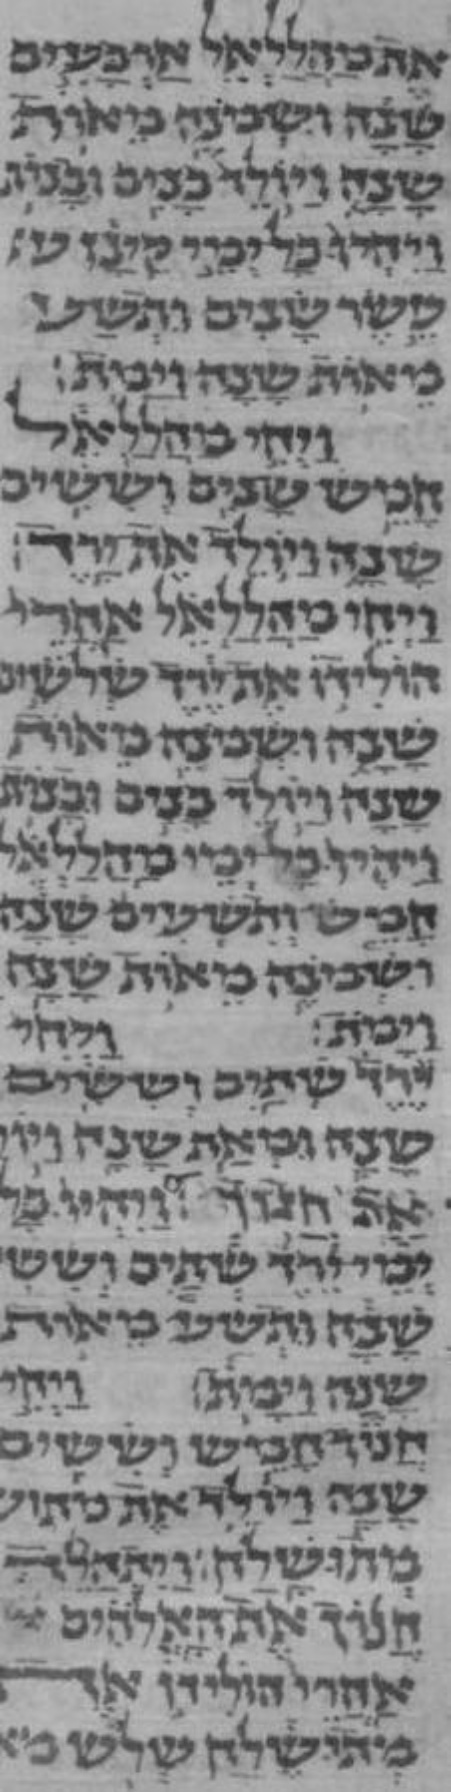 את מהללאל ארבעים
שנה ושמונה מאות
שנה ויולד בנים ובנות
ויהיו כל ימי קינן
עשר שנים ותשע
מאות שנה וימת׃
ויחי מהללאל
חמש שנים וששים
שנה ויולד את ירד׃
ויחי מהללאל אחרי
הולידו את ירד שלשים
שנה ושמונה מאות
שנה ויולד בנים ובנות
ויהיו כל ימי מהללאל
חמש ותשעים שנה
ושמונה מאות שנה
וימת׃ ויחי
ירד שתים וששים
שנה ומאת שנה
את חנוך ויהיו כל
ימי ירד שתים
שנה ותשע מאות
שנה וימת׃ ויחי
חנוך חמש וששים
שנה ויולד את
מתושלח׃ ויתהלך
חנוך את האלהים
אחרי הולידו את
שלש